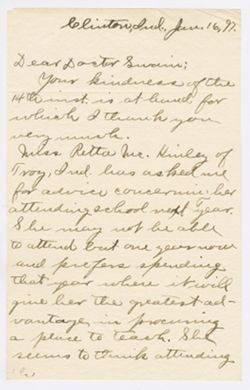 Clinton, Ind., Jan. 16, 97.
Dear Doctor Swain;
Your kindness of the
14th inst. is at hand, for
which I thank you
very much.
Miss Retta Mc. Kinley of
Troy, Ind. has asked me
for advice concerning her
attending school next year.
She may not be able
to attend but one year now
and prefers spending
that year where it will
give her the greatest ad-
vantage, in procuring
a place to teach. She
seems to think attending